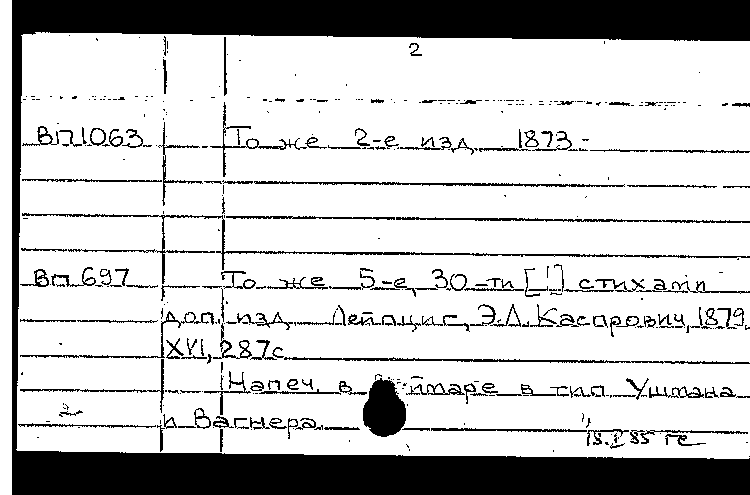 2
Вп1063 То же 2-е изд 1873-
Вп 697 То же 5-е, 30-ти [!] стихами
доп. изд Лейпциг, Э.Л. Каспрович, 1879.
XVI, 287с
Напеч. в в тип Ушмана
2 и Вагнера.
18.I 85 ге